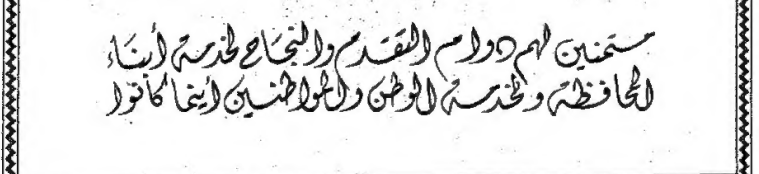 متمنين لهم دوام التقدم والنجاح لخدمة أبناء
المحافظة ولخدمة الوطن والمواطنين أينما كانوا